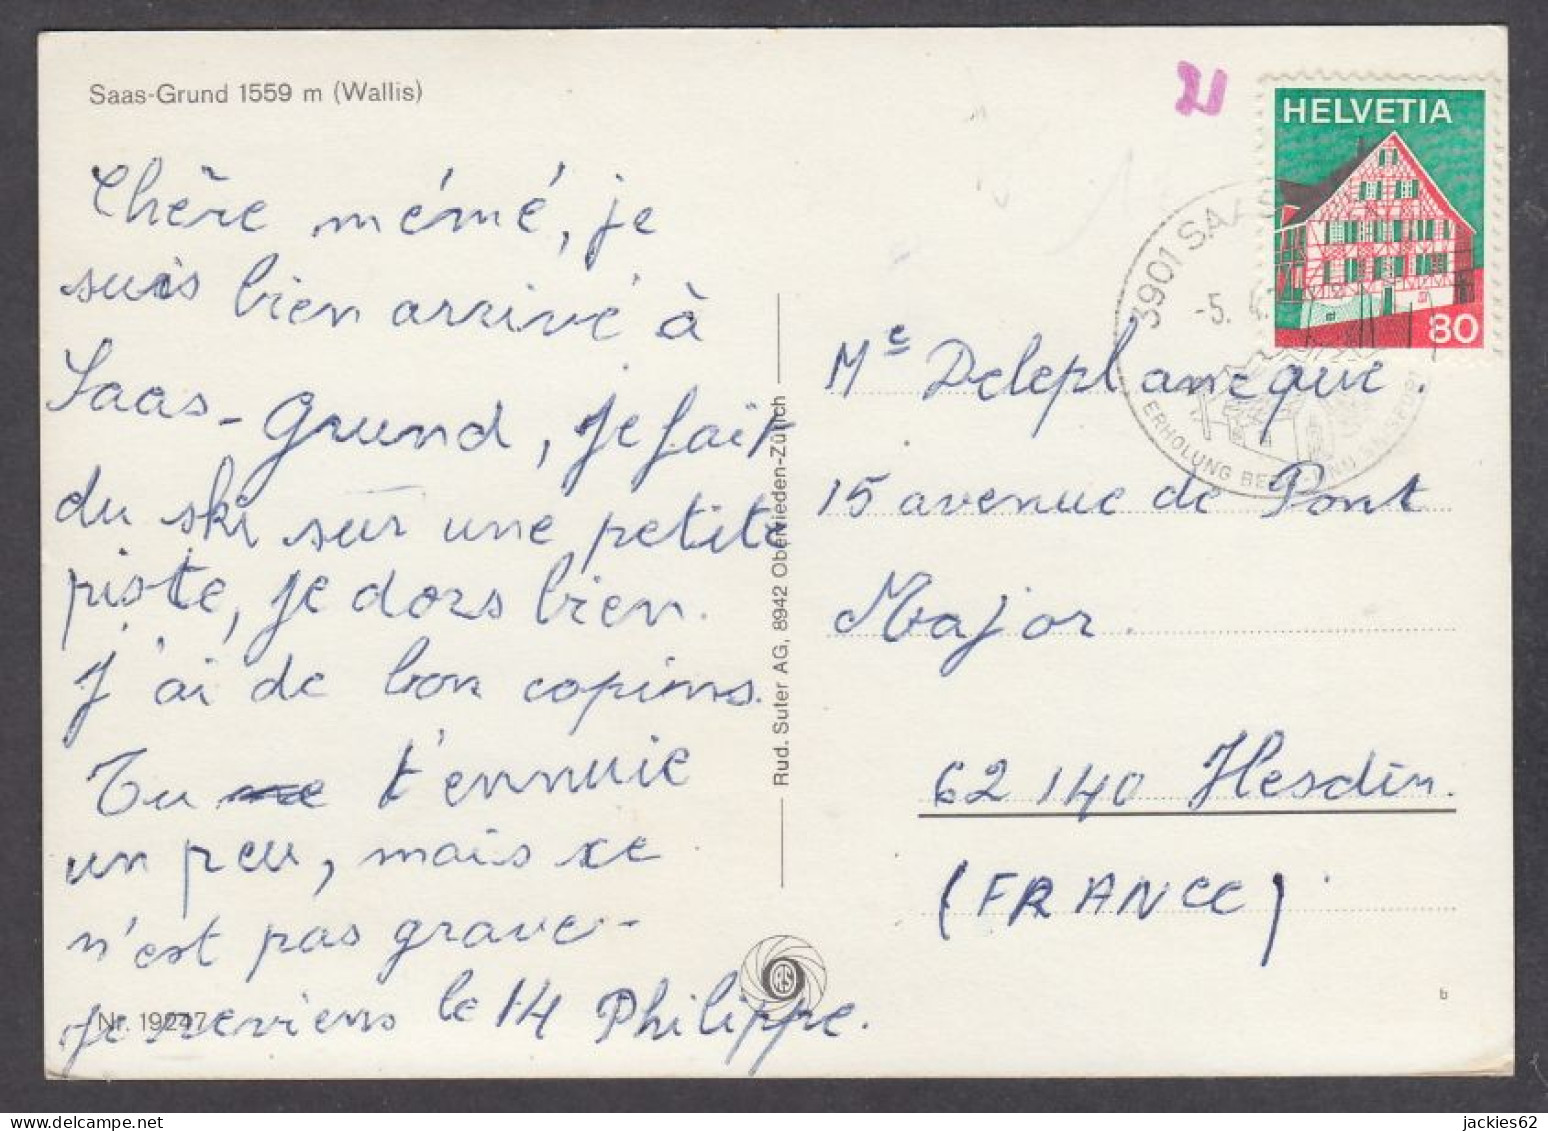 Saas-Grund 1559 m (Wallis)
Chère mémé, je
suis bien arrivé à
Saas-Grund, je fait
du ski sur une petite
piste, je dors bien.
J'ai de bon copins.
Tu t'ennuie
un peu, mais ce
n'est pas grave-
je reviens le 14 Philippe.
Nr. 19247
Rud. Suter AG, 8942 Oberrieden-Zürich
HELVETIA
80
3901 SAAS
-5. 4.
ERHOLUNG
Me Deleplanque.
15 avenue de Pont
Major.
62140 Hesdin.
(FRANCE)
b
jackies62